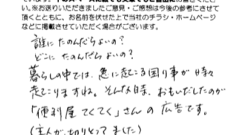 す。※お送りいただきましたご意見・ご感想は今後の参考にさせて
頂くとともに、お名前を伏せた上で当社のチラシ・ホームページ
などに掲載させていただく場合がございます。
誰にたのんだらよいの?
どこにたのんだらよいの?
暮らしの中では、急に起こる困り事が時々
起こりますよね。そんな時、おもいだしたのが
「便利屋てくてく」さんの広告です。
(主人が、切りとってました)